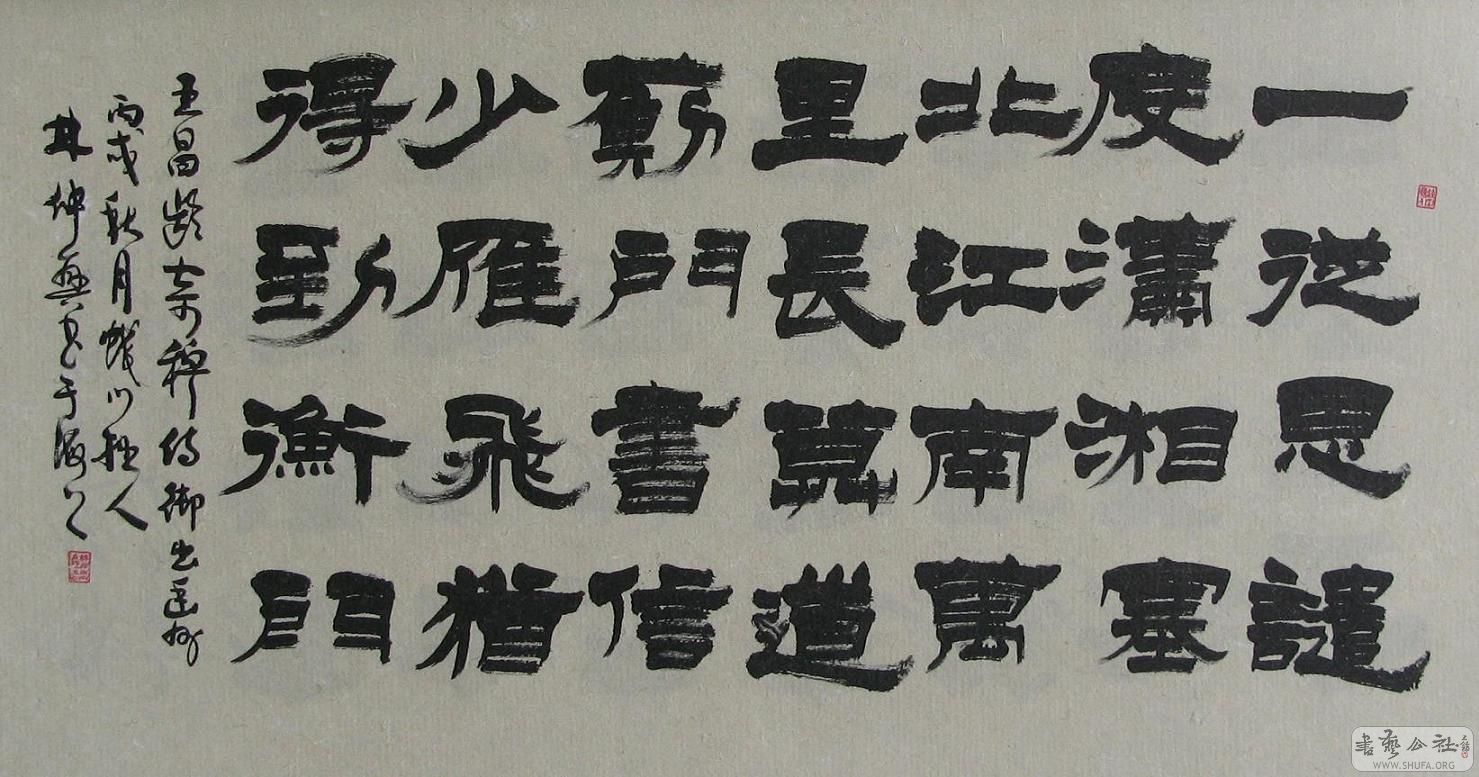 一從思譴
度瀟湘塞
北江南萬
里長莫道
薊門書信
少雁飛猶
得到衡門
王昌齡寄穆侍御出幽州
丙戌秋月川拙人
林坤于海
書藝公社
WWW.SHUFA.ORG